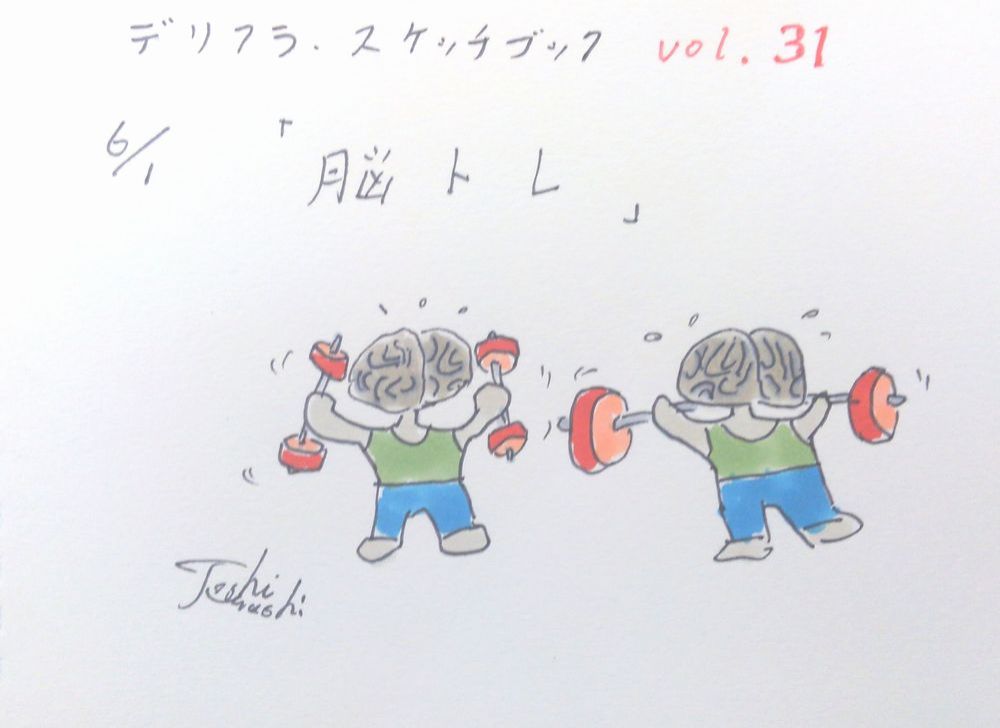 デリフラ・スケッチブック vol. 31
6/1 「脳トレ」
Toshi